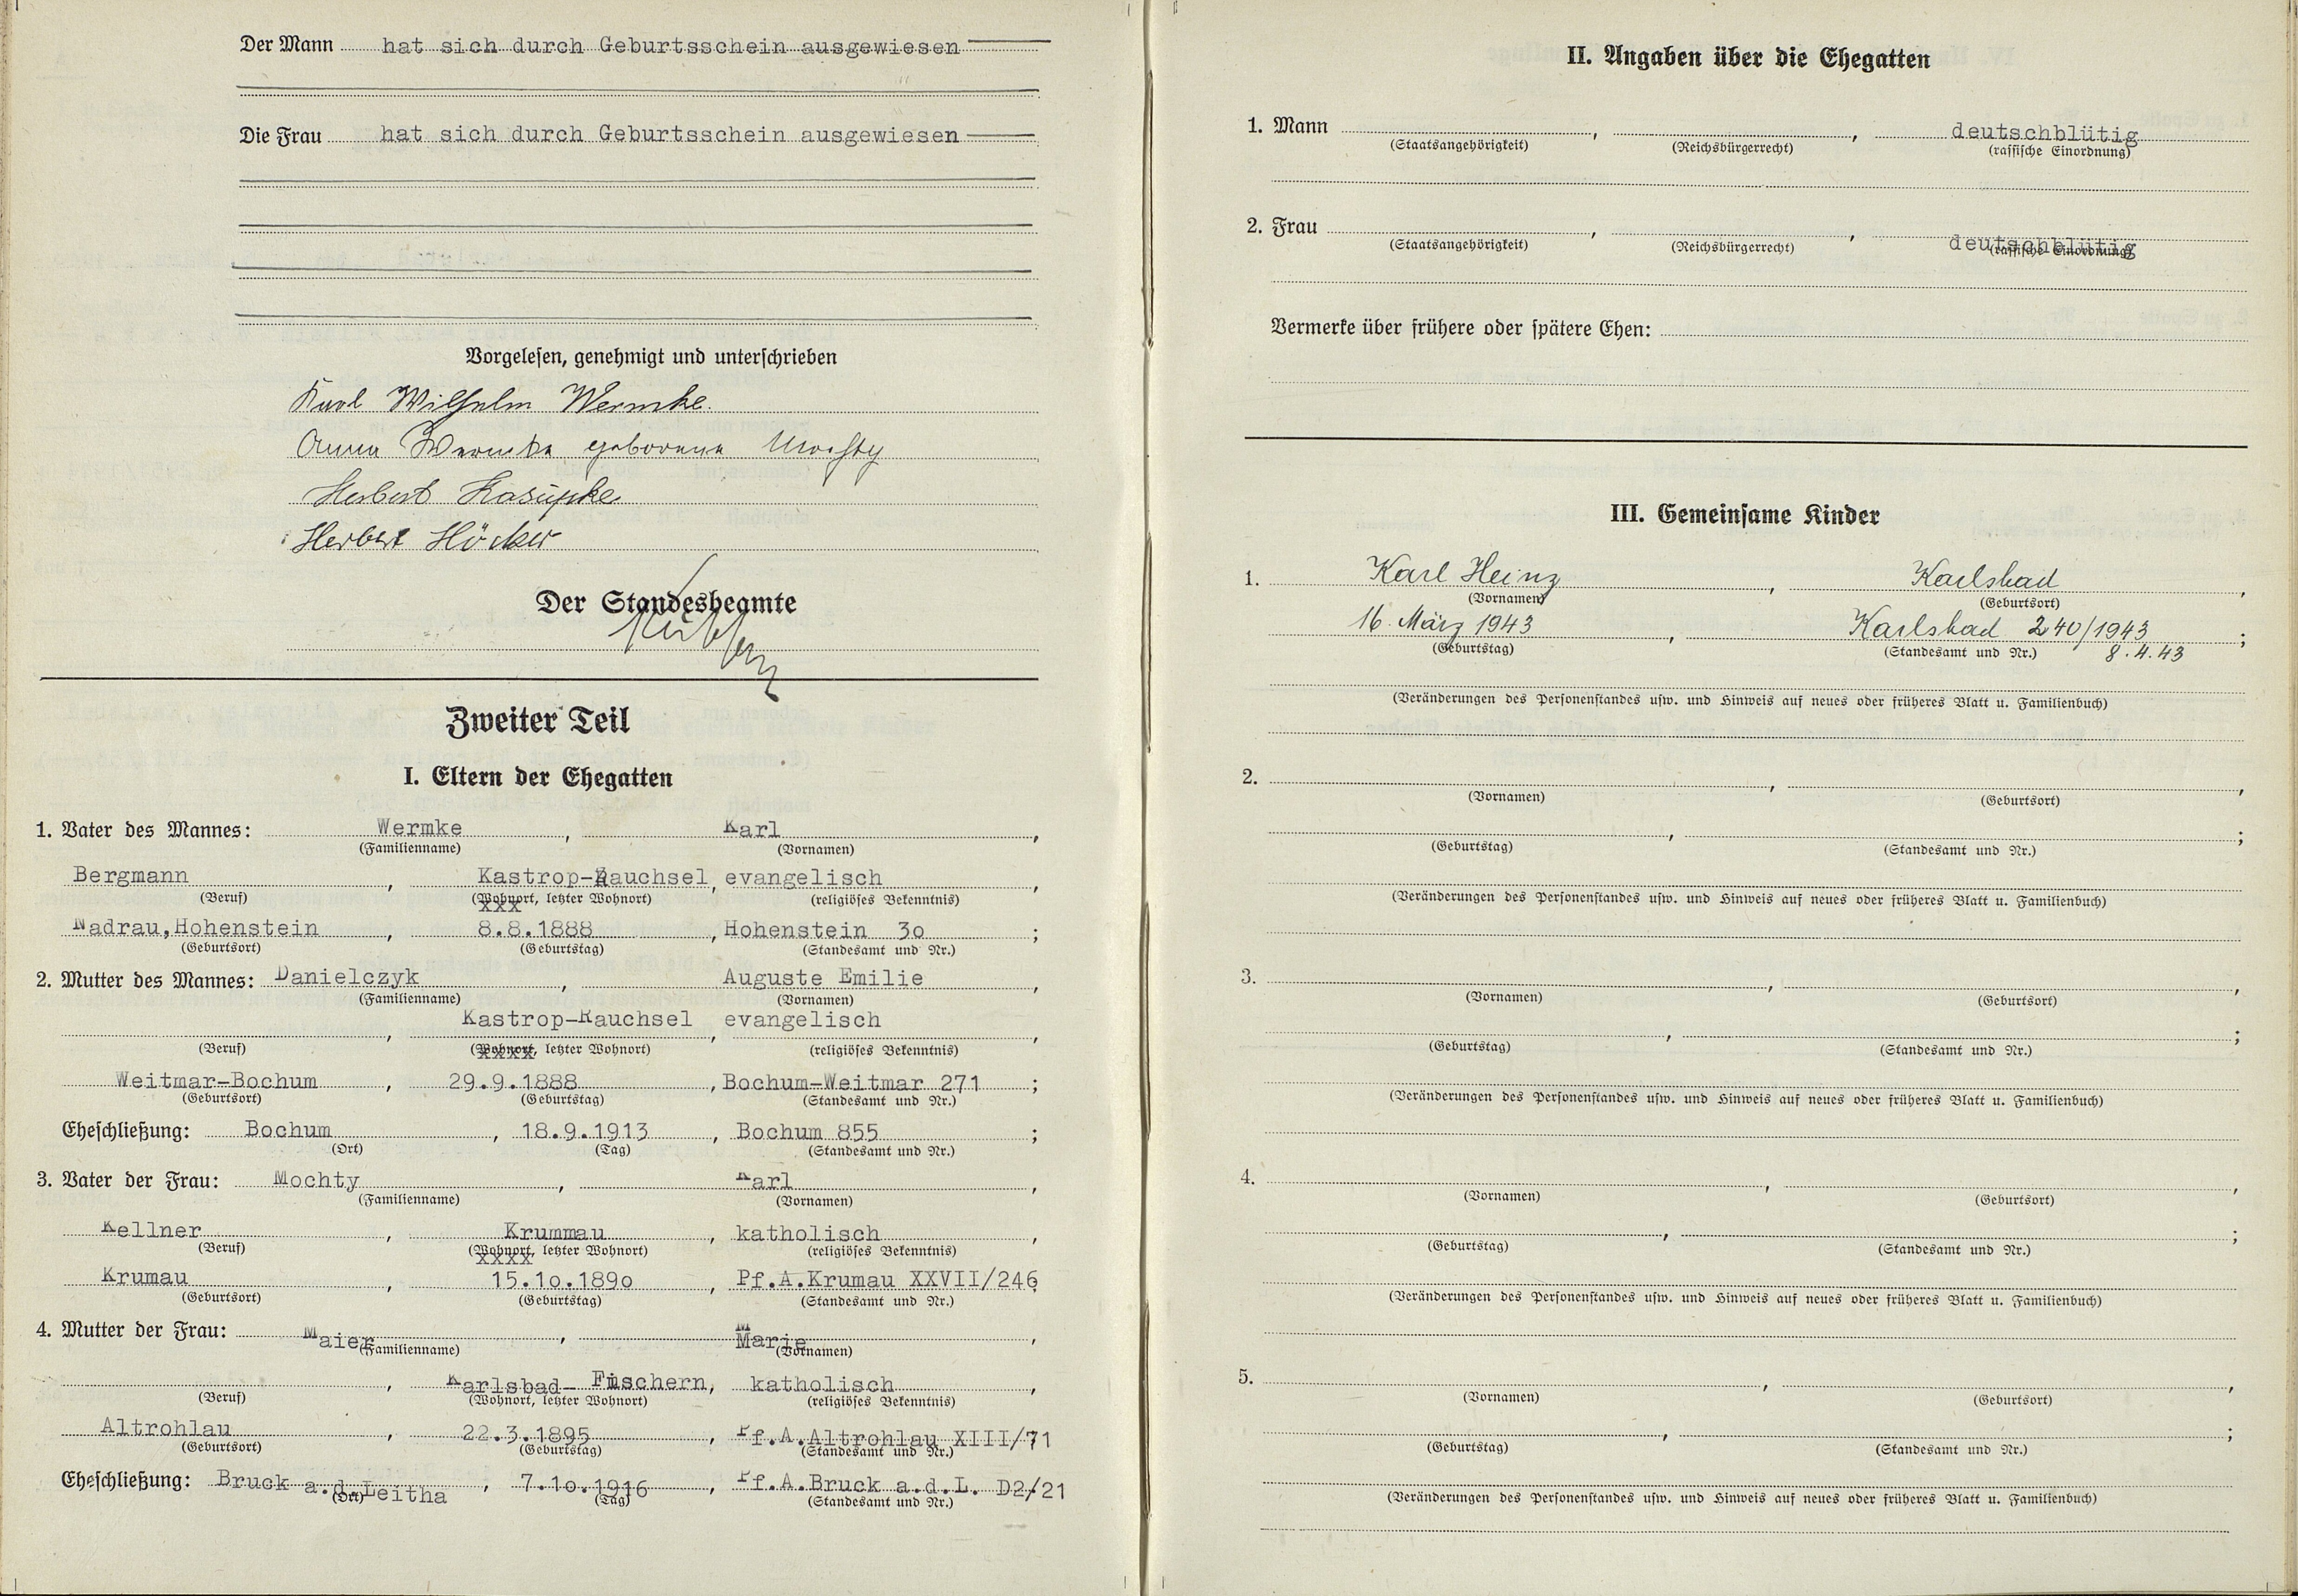 Der Mann hat sich durch Geburtsschein ausgewiesen
Die Frau hat sich durch Geburtsschein ausgewiesen
Vorgelesen, genehmigt und unterschrieben
Karl Wilhelm Wermke.
Anna Wermke geborene Mochty
Herbert Kasupke
Herbert Höcker
Der Standesbeamte
Zweiter Teil
I. Eltern der Ehegatten
1. Vater des Mannes: Wermke, Karl,
(Familienname) (Vornamen)
Bergmann, Kastrop-Rauchsel, evangelisch,
(Beruf) (Wohnort, letzter Wohnort) (religiöses Bekenntnis)
xxx
Nadrau,Hohenstein, 8.8.1888, Hohenstein 3o;
(Geburtsort) (Geburtstag) (Standesamt und Nr.)
2. Mutter des Mannes: Danielczyk, Auguste Emilie,
(Familienname) (Vornamen)
, Kastrop-Rauchsel, evangelisch,
(Beruf) (Wohnort, letzter Wohnort) (religiöses Bekenntnis)
xxxx
Weitmar-Bochum, 29.9.1888, Bochum-Weitmar 271;
(Geburtsort) (Geburtstag) (Standesamt und Nr.)
Eheschließung: Bochum, 18.9.1913, Bochum 855;
(Ort) (Tag) (Standesamt und Nr.)
3. Vater der Frau: Mochty, Karl,
(Familienname) (Vornamen)
Kellner, Krummau, katholisch,
(Beruf) (Wohnort, letzter Wohnort) (religiöses Bekenntnis)
xxxx
Krumau, 15.1o.189o, Pf.A.Krumau XXVII/246;
(Geburtsort) (Geburtstag) (Standesamt und Nr.)
4. Mutter der Frau: Maier, Marie,
(Familienname) (Vornamen)
, Karlsbad- Fischern, katholisch,
(Beruf) (Wohnort, letzter Wohnort) (religiöses Bekenntnis)
Altrohlau, 22.3.1895, Pf.A.Altrohlau XIII/71
(Geburtsort) (Geburtstag) (Standesamt und Nr.)
Eheschließung: Bruck a.d.Leitha, 7.1o.1916, Pf.A.Bruck a.d.L. D2/21
(Ort) (Tag) (Standesamt und Nr.)
II. Angaben über die Ehegatten
1. Mann , , deutschblütig
(Staatsangehörigkeit) (Reichsbürgerrecht) (rassische Einordnung)
2. Frau , , deutschblütig
(Staatsangehörigkeit) (Reichsbürgerrecht) (rassische Einordnung)
Vermerke über frühere oder spätere Ehen:
III. Gemeinsame Kinder
1. Karl Heinz, Karlsbad,
(Vornamen) (Geburtsort)
16. März 1943, Karlsbad 240/1943;
(Geburtstag) (Standesamt und Nr.) 8.4.43
(Veränderungen des Personenstandes usw. und Hinweis auf neues oder früheres Blatt u. Familienbuch)
2. , ,
(Vornamen) (Geburtsort)
, ;
(Geburtstag) (Standesamt und Nr.)
(Veränderungen des Personenstandes usw. und Hinweis auf neues oder früheres Blatt u. Familienbuch)
3. , ,
(Vornamen) (Geburtsort)
, ;
(Geburtstag) (Standesamt und Nr.)
(Veränderungen des Personenstandes usw. und Hinweis auf neues oder früheres Blatt u. Familienbuch)
4. , ,
(Vornamen) (Geburtsort)
, ;
(Geburtstag) (Standesamt und Nr.)
(Veränderungen des Personenstandes usw. und Hinweis auf neues oder früheres Blatt u. Familienbuch)
5. , ,
(Vornamen) (Geburtsort)
, ;
(Geburtstag) (Standesamt und Nr.)
(Veränderungen des Personenstandes usw. und Hinweis auf neues oder früheres Blatt u. Familienbuch)